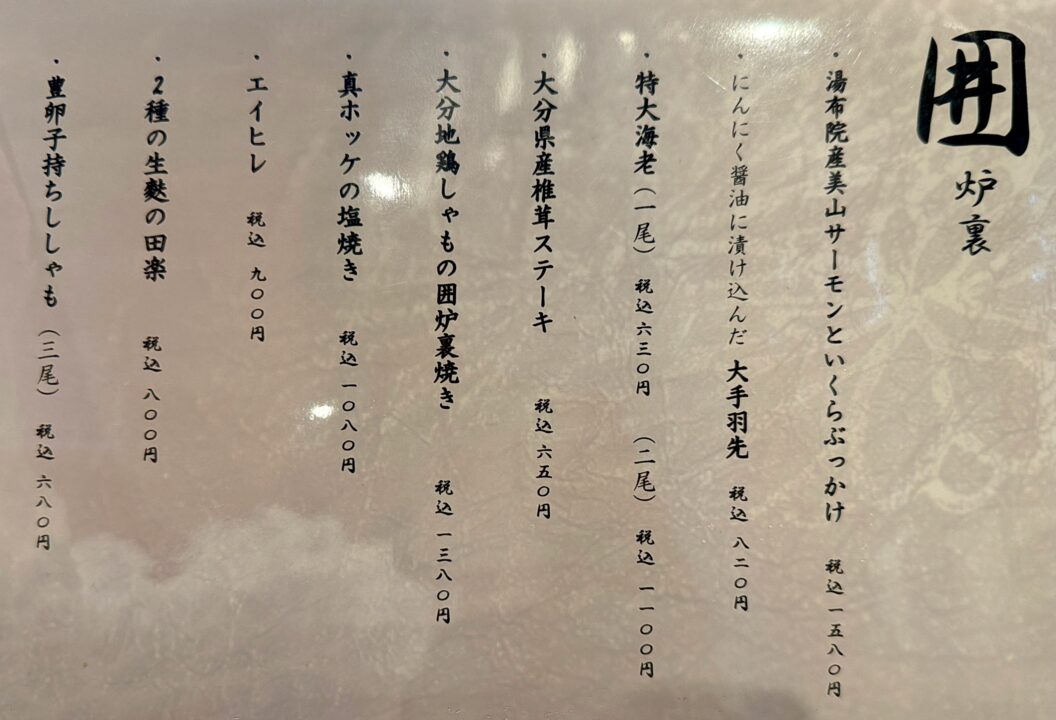 囲炉裏
・湯布院産美山サーモンといくらぶっかけ 税込 一五八〇円
・にんにく醤油に漬け込んだ 大手羽先 税込 八二〇円
・特大海老（一尾） 税込 六三〇円 （二尾） 税込 一一〇〇円
・大分県産椎茸ステーキ 税込 六五〇円
・大分地鶏しゃもの囲炉裏焼き 税込 一三八〇円
・真ホッケの塩焼き 税込 一〇八〇円
・エイヒレ 税込 九〇〇円
・2種の生麩の田楽 税込 八〇〇円
・豊卵子持ちししゃも（三尾） 税込 六八〇円